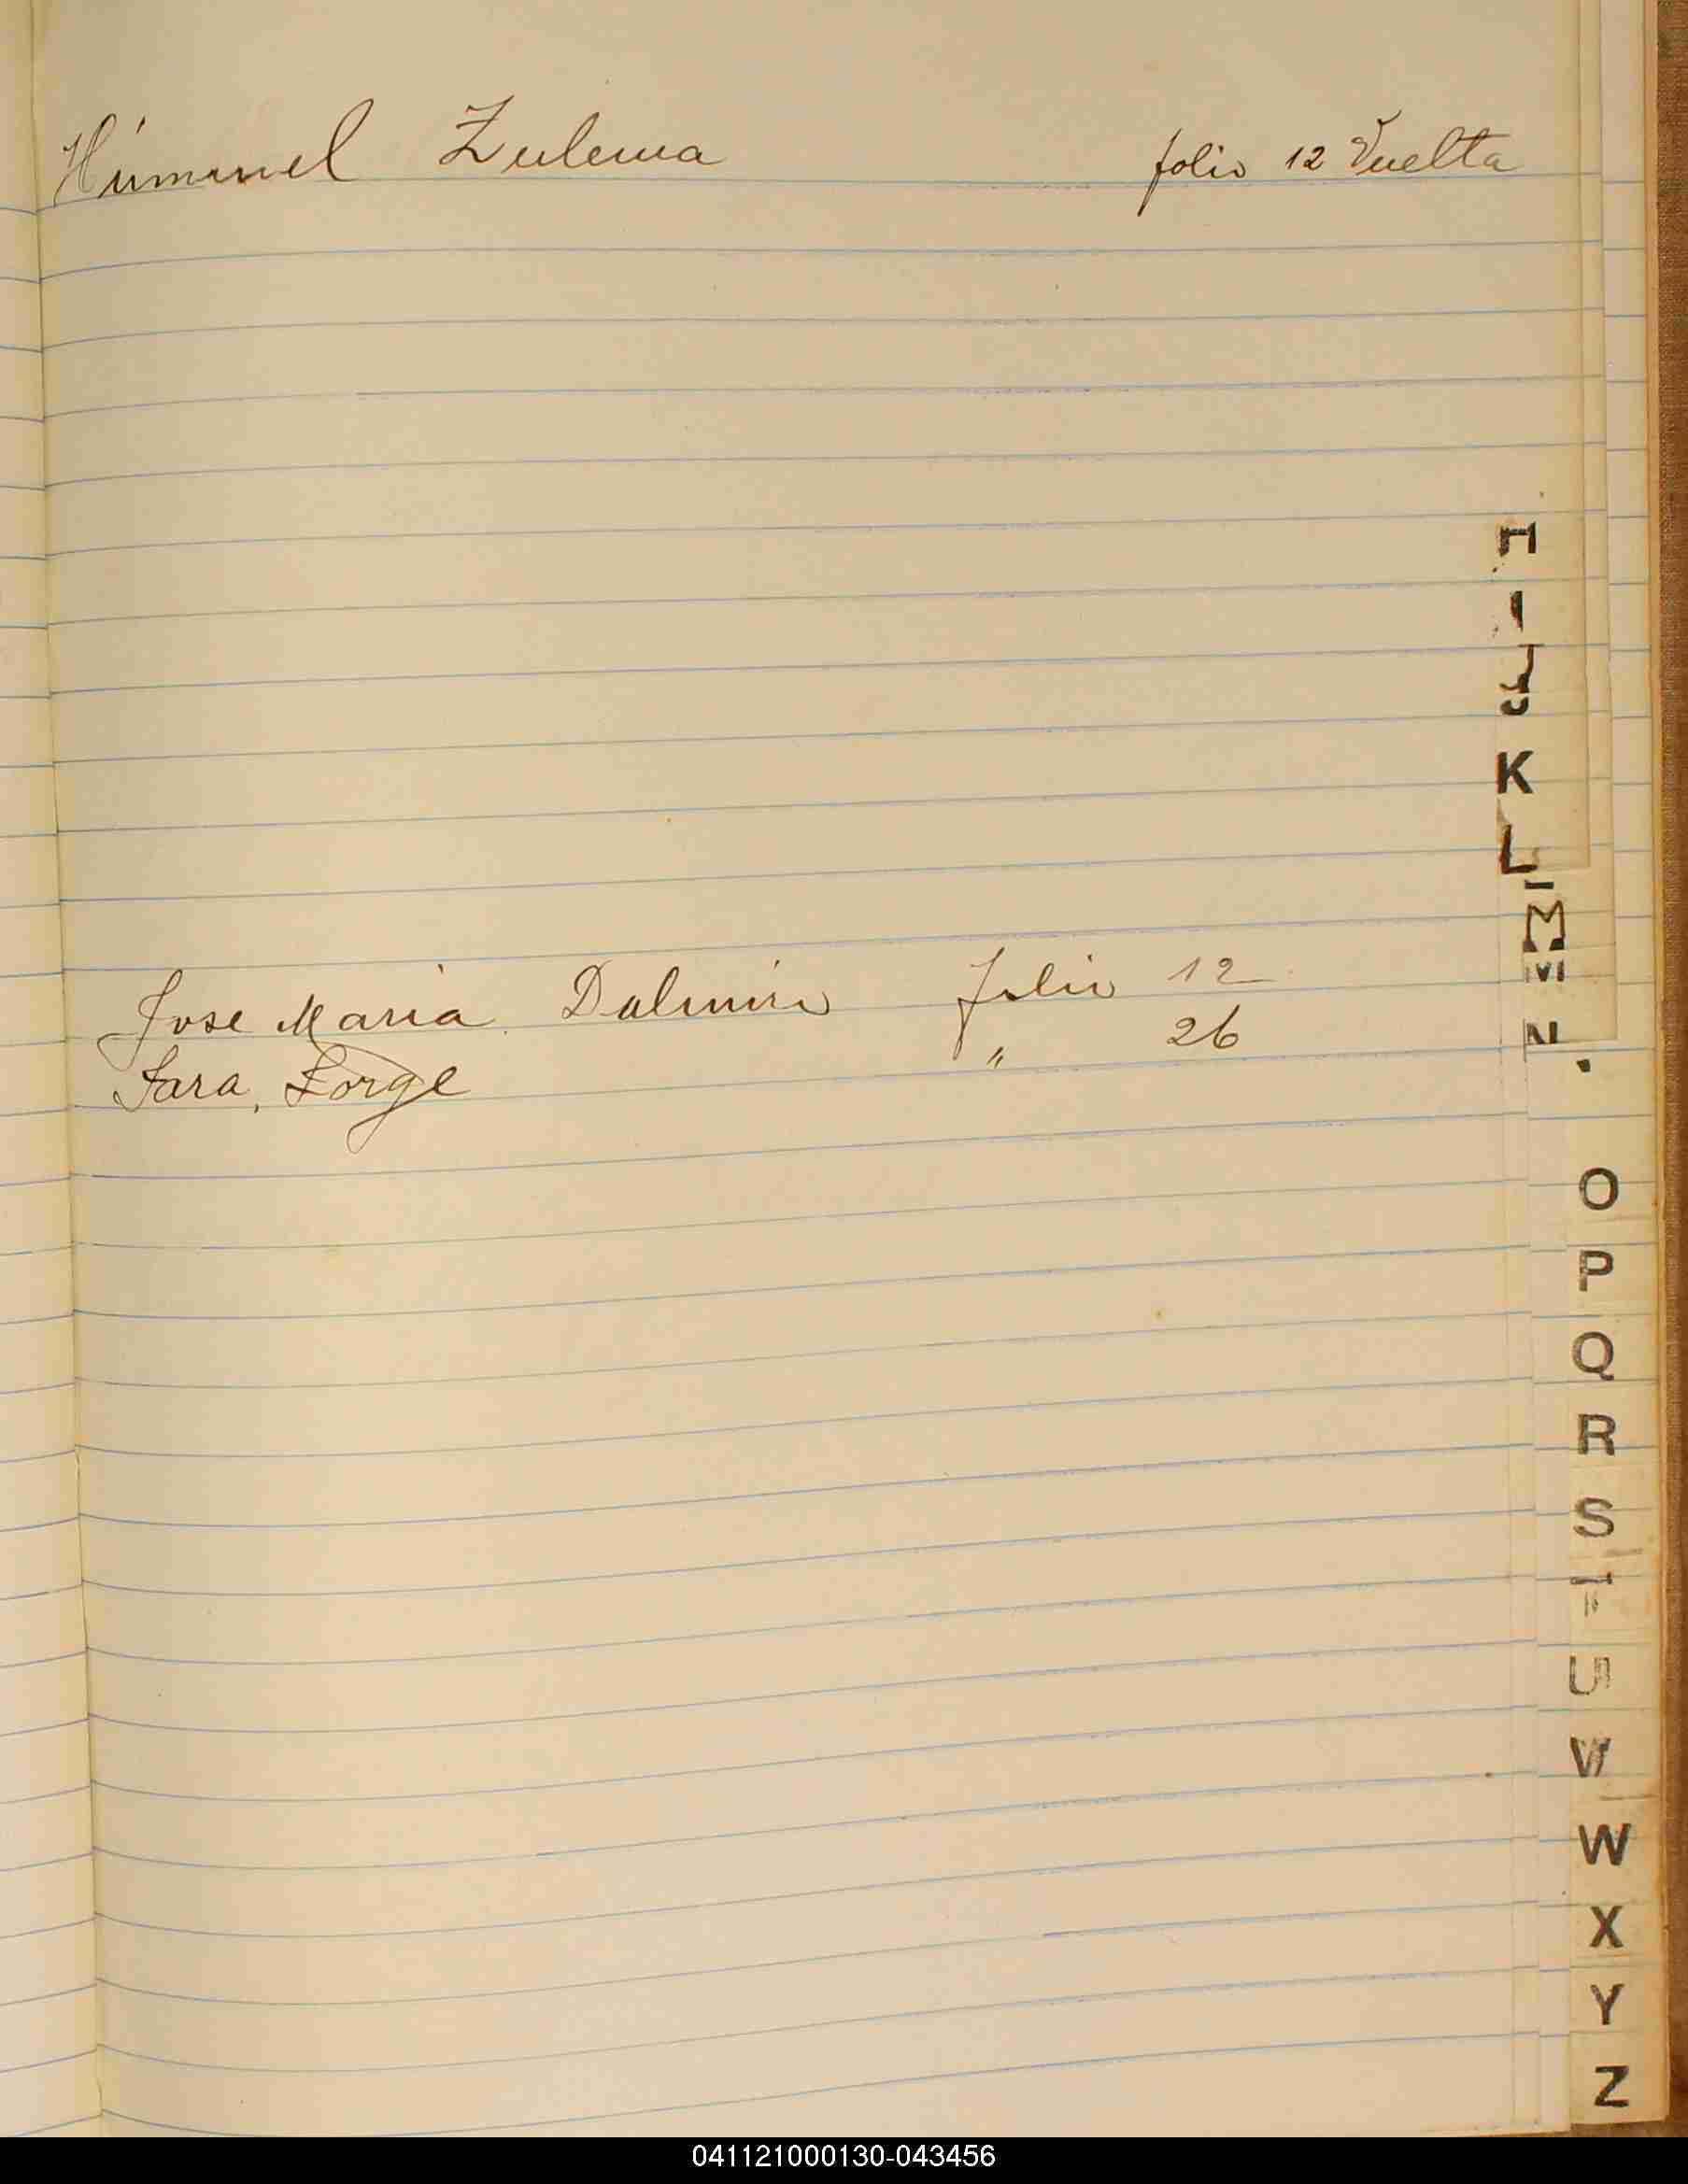 Himmel Zulema folio 12 Vuelta
H
I
J
K
L
M
M
N
Jose Maria Dalmiro folio 12
Sara, Jorge " 26
O
P
Q
R
S
T
U
V
W
X
Y
Z
041121000130-043456